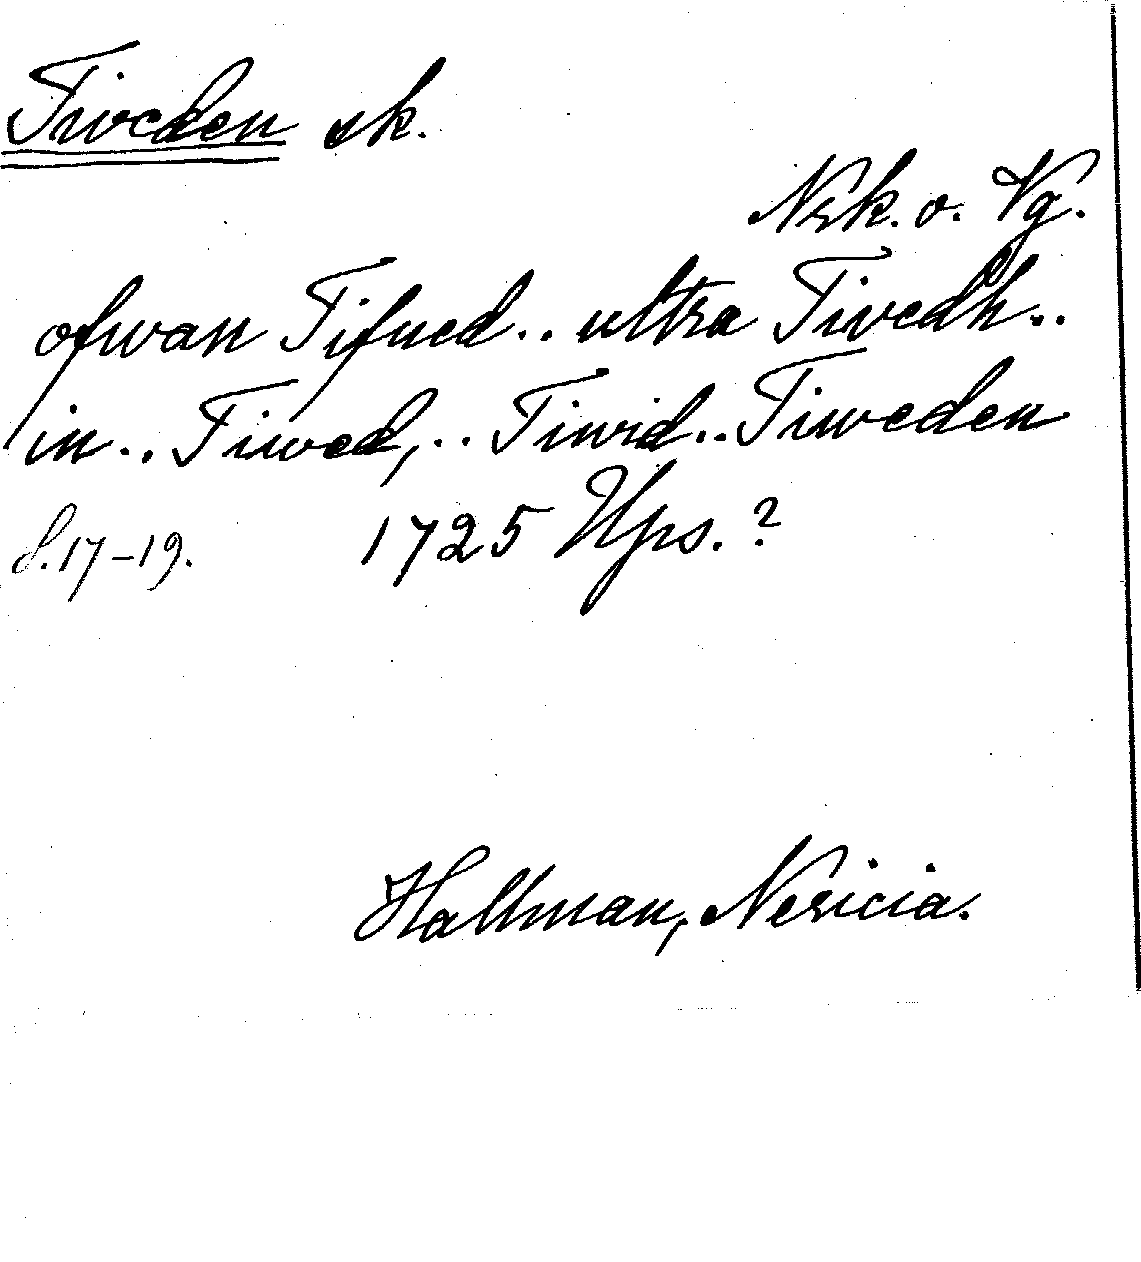 Tiveden sk.
Nrk. o. Vg.
ofwan Tifued.. ultra Tivedh..
in.. Tiwed,.. Tiwid.. Tiweden
S. 17-19. 1725 Ups.?
Hallman, Nericia.